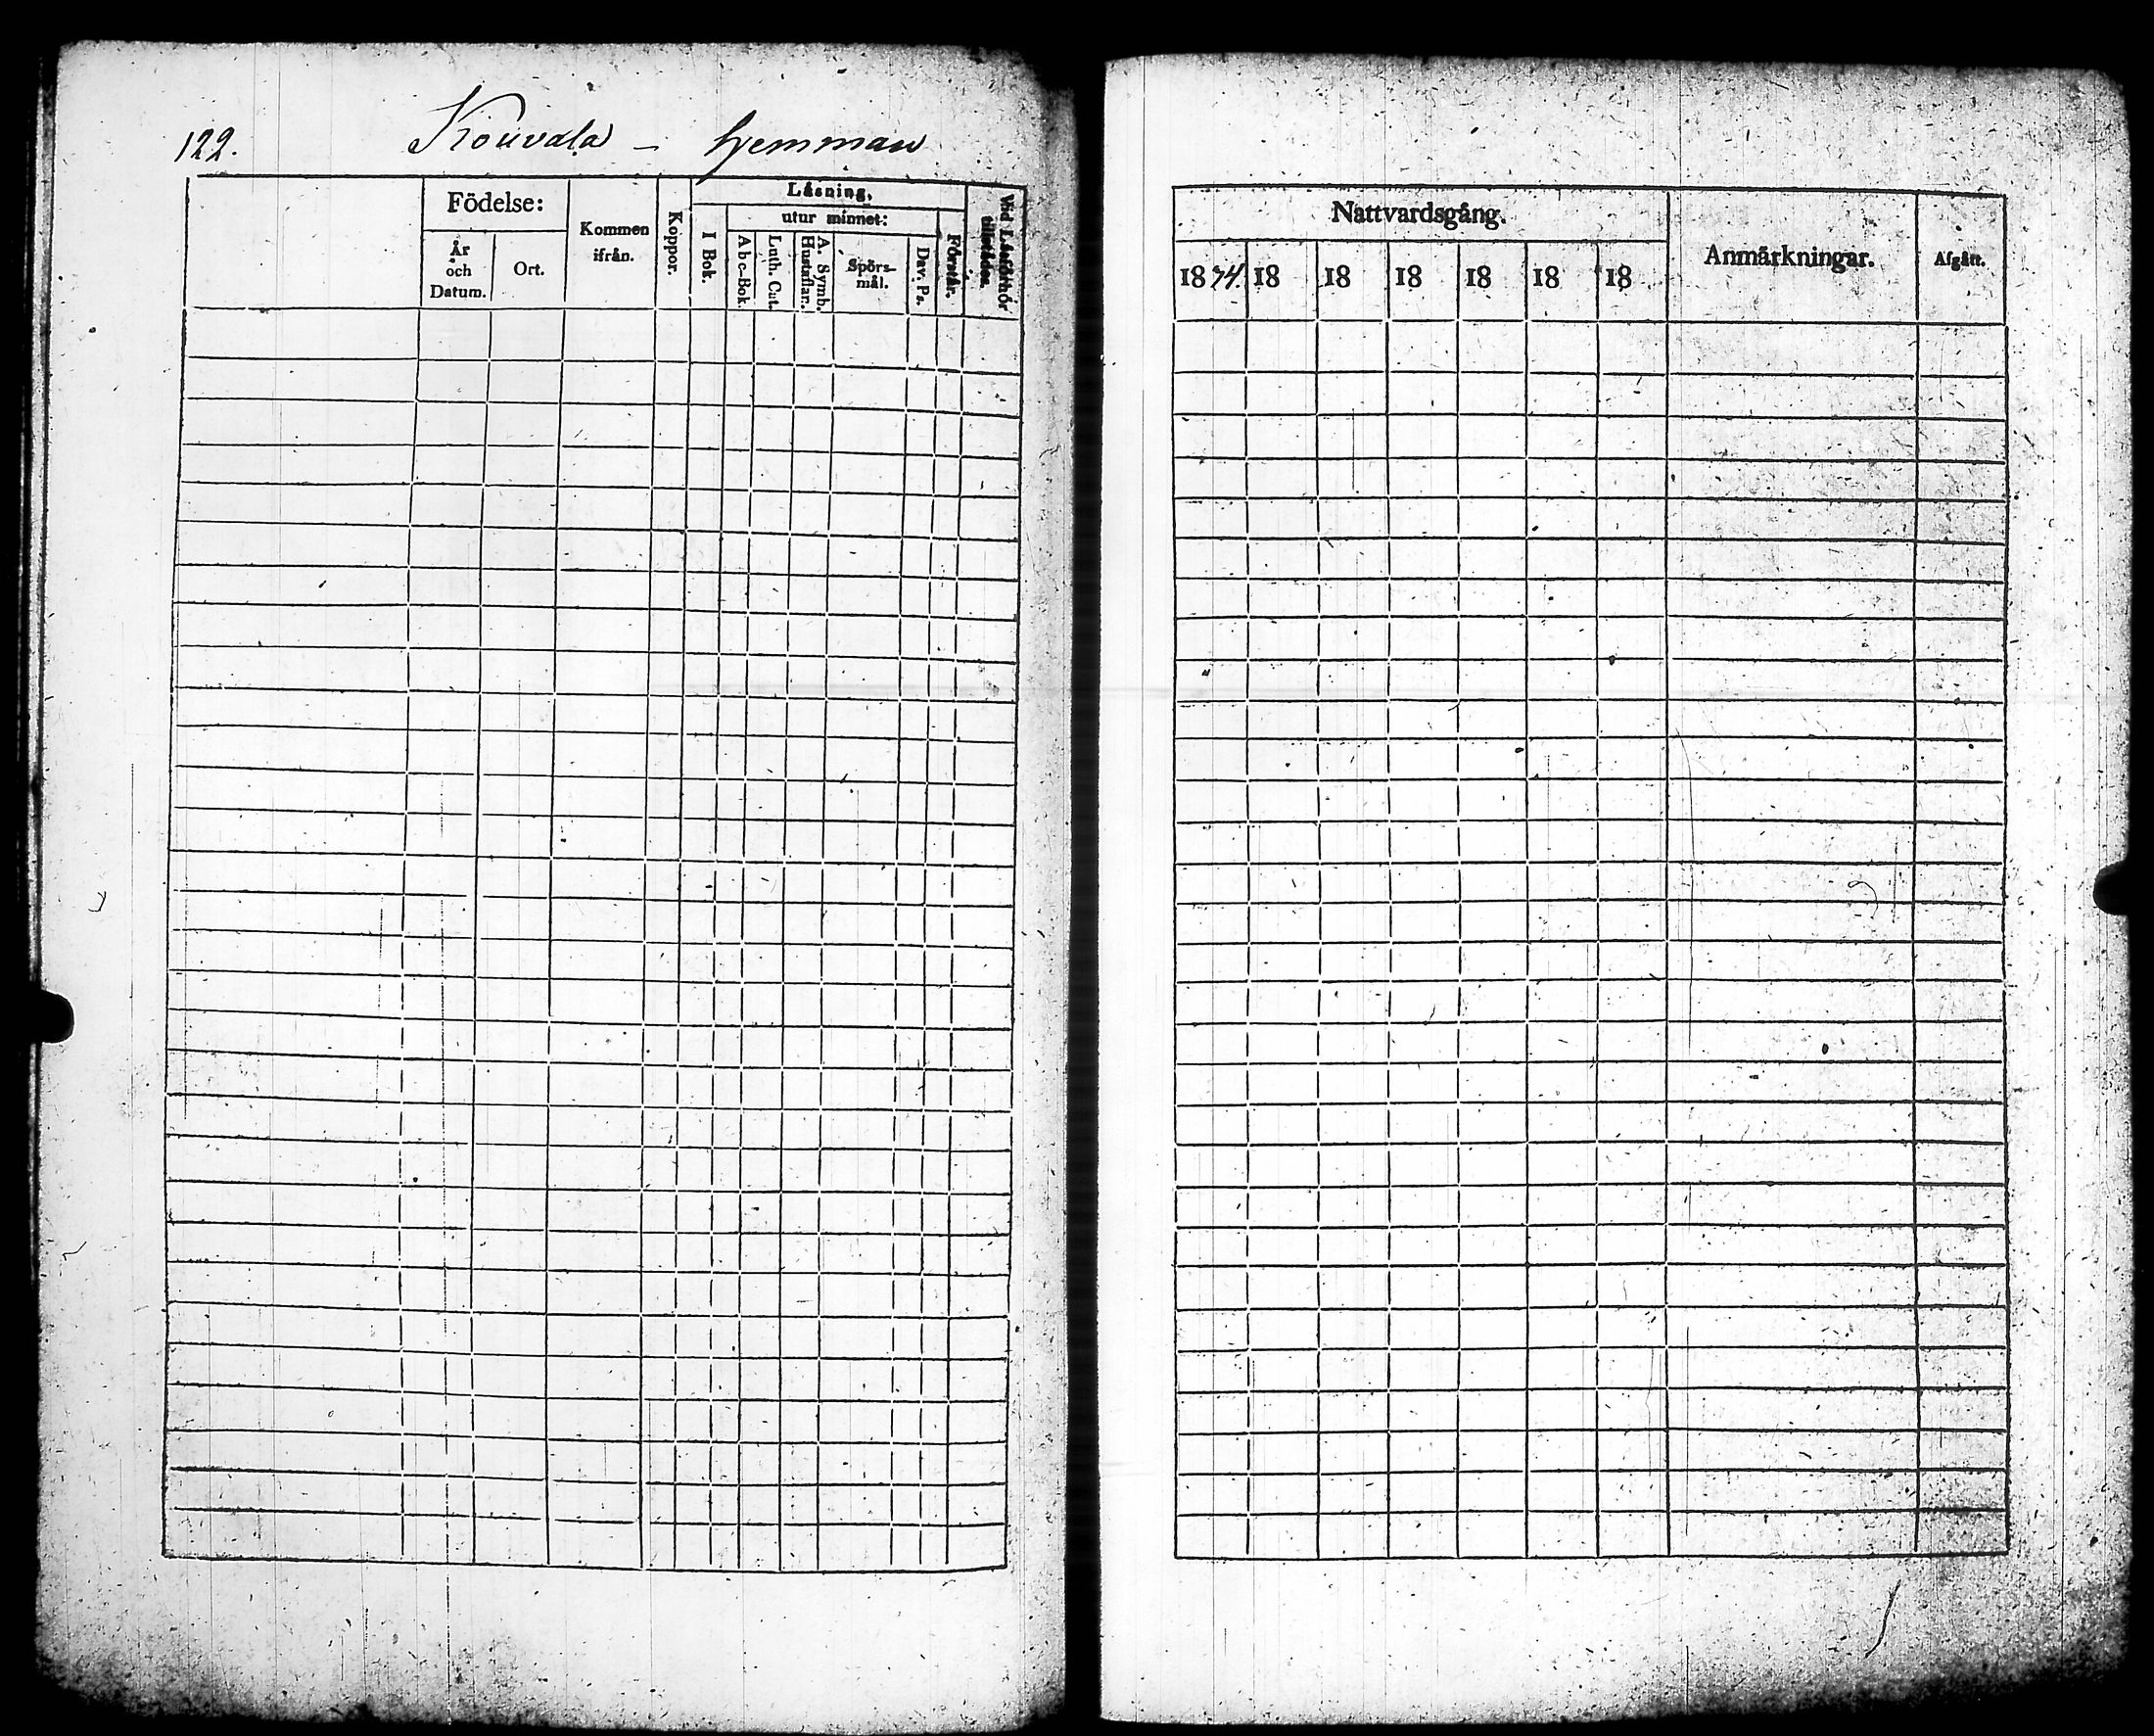 122. Kouvala - hemman
Födelse:
År och Datum.
Ort.
Kommen ifrån.
Koppor.
Läsning,
I Bok.
utur minnet:
Abc-Bok.
Luth. Cat.
A. Symb. Hustaflar.
Spörs-mål.
Dav. Ps.
Förstår.
Vid Läsförhör tillstädes.
Nattvardsgång.
1834. 18 18 18 18 18 18
Anmärkningar.
Afgått.